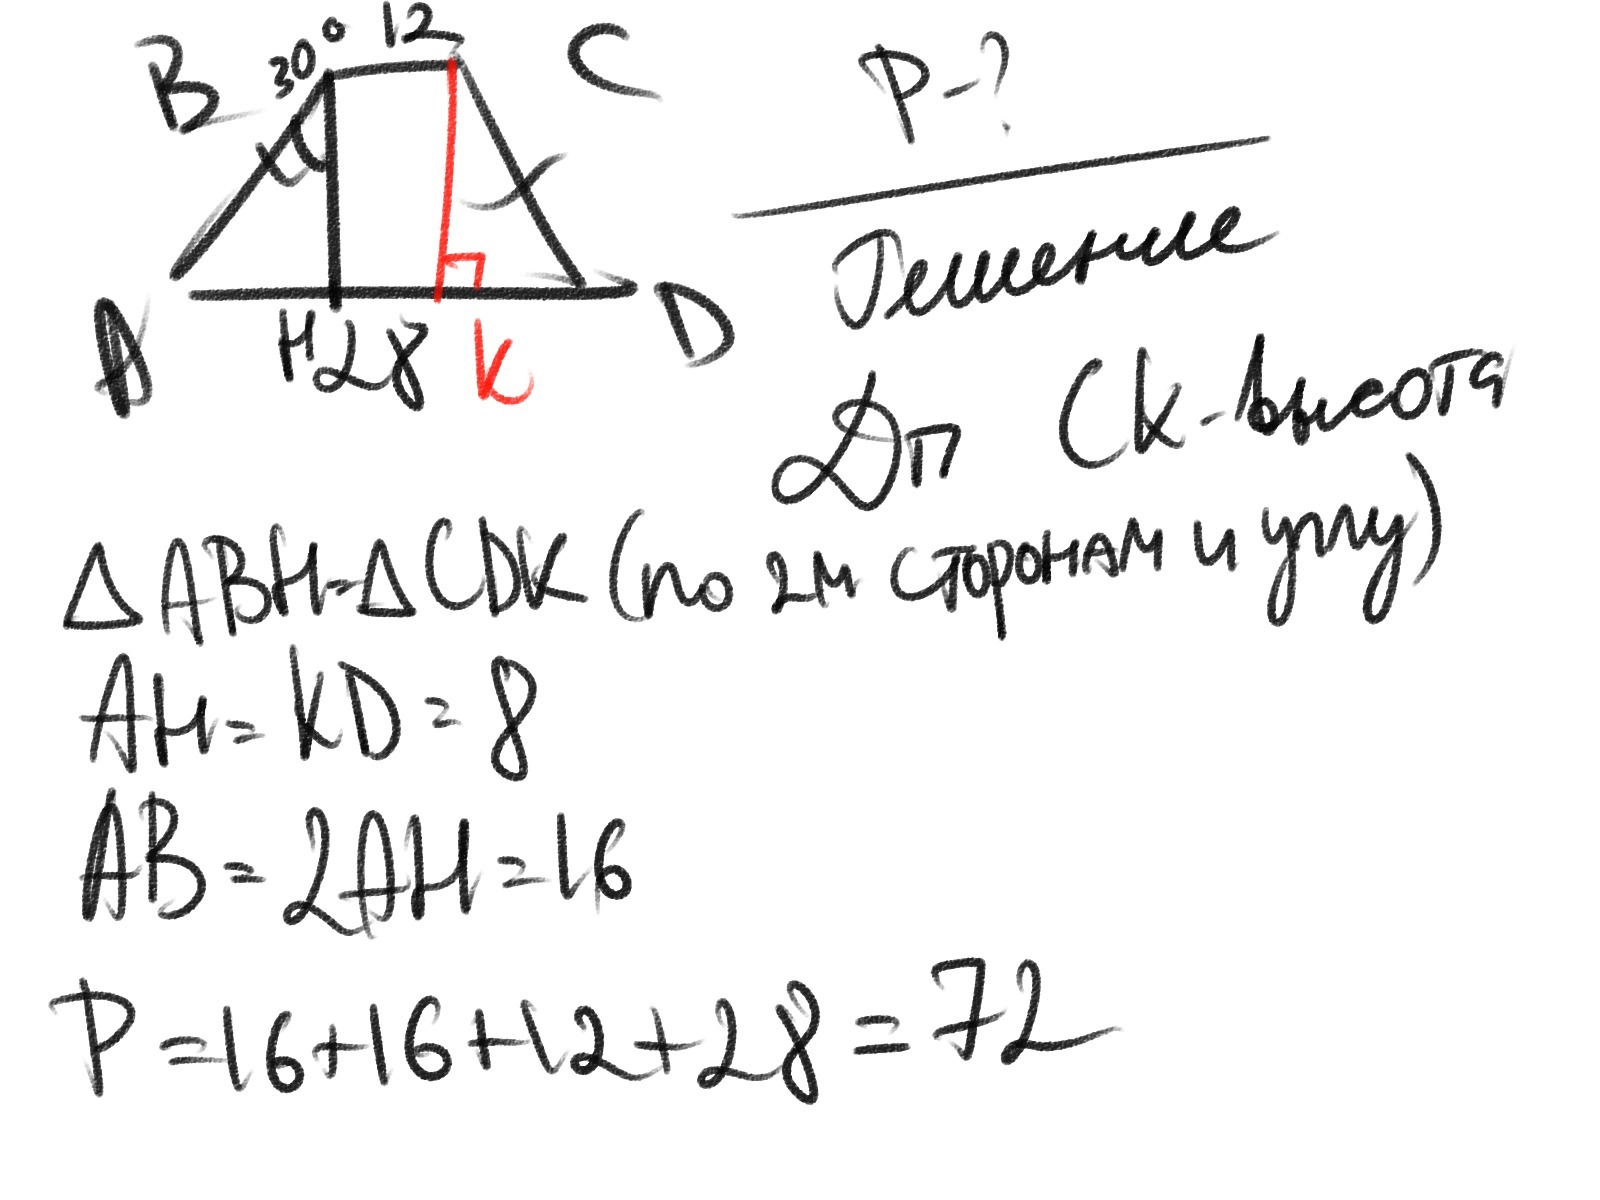 B 30° 12 C
A H 28 K D
P-?
Решение
Дп CK-высота
△ABH=△CDK (по 2м сторонам и углу)
AH=KD=8
AB=2AH=16
P=16+16+12+28=72